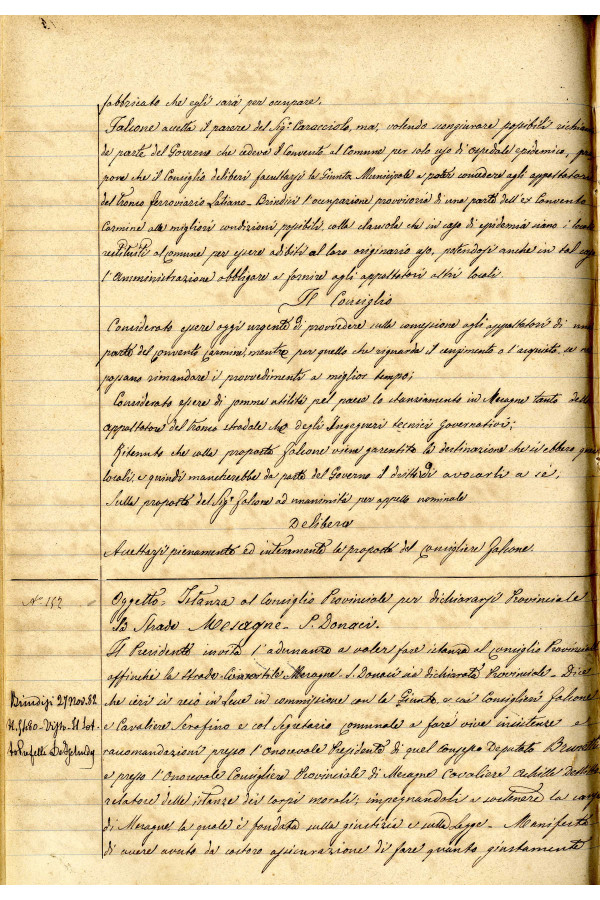 fabbricato che egli sarà per occupare.
Falcone accetta il parere del Sig.r Caracciolo, ma, volendo scongiurare possibili richiami
da parte del Governo che cedeva il Convento al Comune per solo uso di Ospedale epidemico, pro
pone che il Consiglio deliberi facultarsi la Giunta Municipale a poter concedere agli appaltatori
del tronco ferroviario Latiano-Brindisi l'occupazione provvisoria di una parte dell'ex Convento
Carmine alle migliori condizioni possibili, colla clausola che in caso di epidemia siano i locali
restituiti al Comune per essere adibiti al loro originario uso, potendosi anche in tal caso
l'Amministrazione obbligare a fornire agli appaltatori altri locali.
Il Consiglio
Considerato essere oggi urgente di provvedere sulla concessione agli appaltatori di una
parte del convento Carmine, mentre per quello che riguarda il censimento o l'acquisto, se ne
possano rimandare i provvedimenti a miglior tempo;
Considerato essere di somma utilità pel paese lo stanziamento in Mesagne tanto dello
appaltatore del tronco stradale che degli Ingegneri tecnici governativi;
Ritenuto che colla proposta Falcone viene garentita la destinazione che si ebbero quei
locali, e quindi mancherebbe da parte del Governo il diritto di avocarli a sé,
Sulla proposta del Sig.r Falcone ad unanimità per appello nominale
Delibera
Accettarsi pienamente ed interamente la proposta del consigliere Falcone.
N.° 152
Oggetto = Istanza al Consiglio Provinciale per dichiararsi Provinciale
la Strada Mesagne - S. Donaci.
Il Presidente invita l'adunanza a voler fare istanza al Consiglio Provinciale
affinché la strada Consortile Mesagne S. Donaci sia dichiarata Provinciale - Dice
che ieri si recò in Lecce in commissione con la Giunta, e coi Consiglieri Falcone
e Cavaliere Serafino e col Segretario comunale a fare vive insistenze e
raccomandazioni presso l'Onorevole Presidente di quel Consesso Deputato Brunetti
e presso l'Onorevole Consigliere Provinciale di Mesagne Cavaliere Achille
relatore delle istanze dei corpi morali; impegnandoli a sostenere la causa
di Mesagne la quale è fondata sulla giustizia e sulla legge - Manifesta
di avere avuto da costoro assicurazione di fare quanto giustamente
Brindisi 27 Nov. 82
N. 5480 - Visto - Il Sot-
to Prefetto